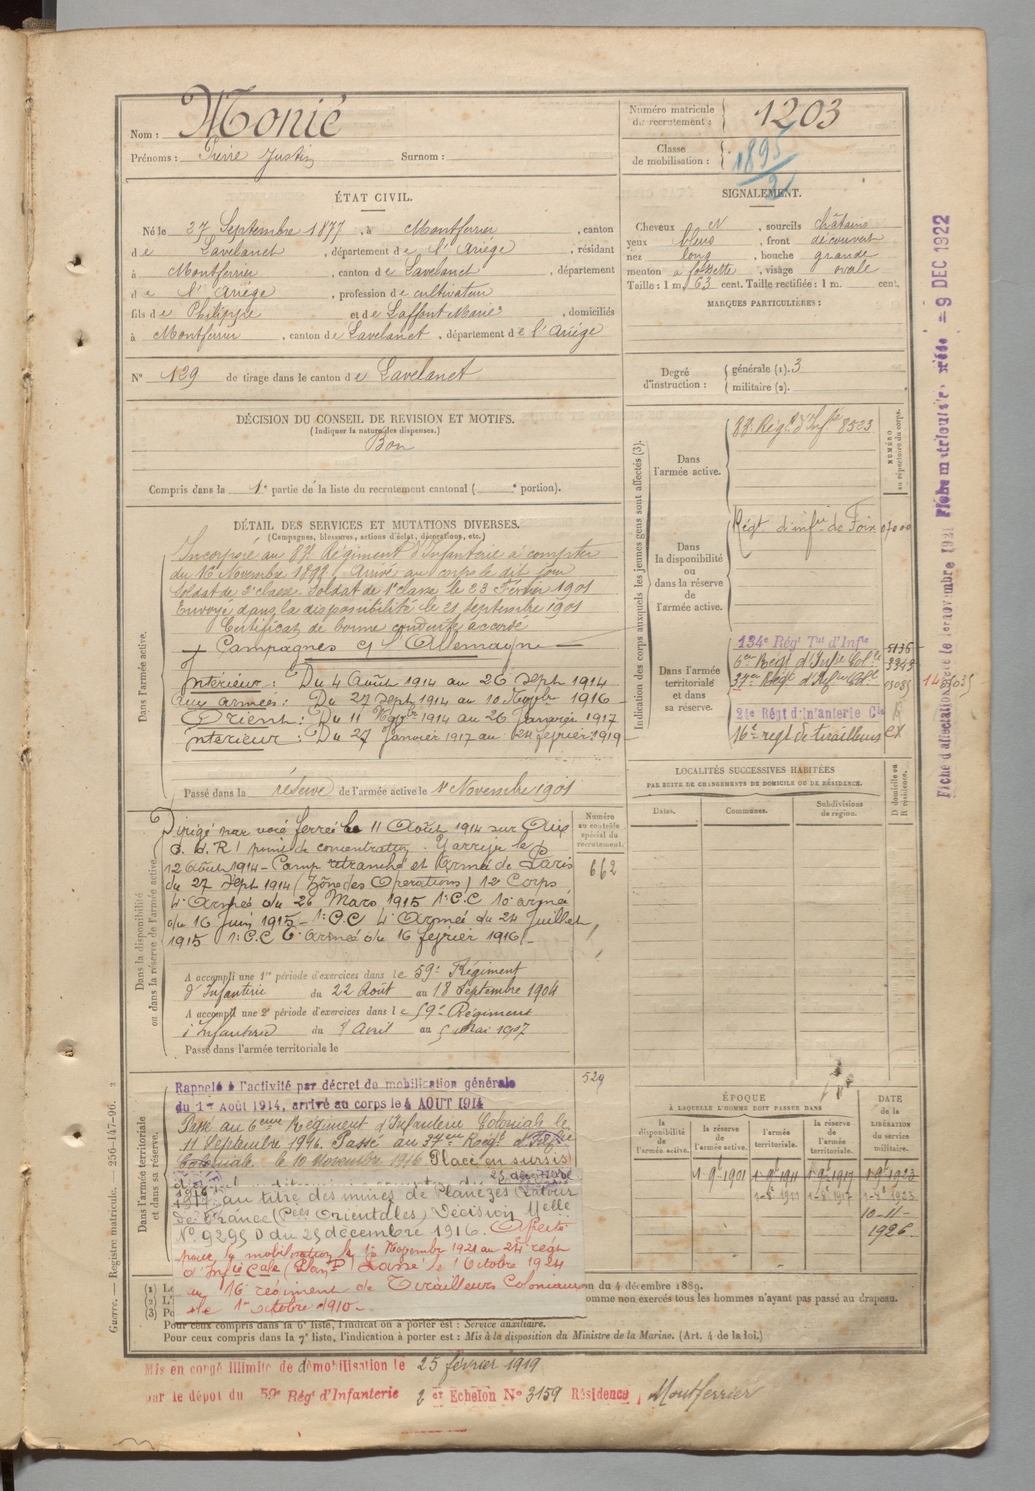 Nom : Monié
Prénoms : Pierre Justin Surnom :
Numéro matricule du recrutement : 1203
Classe de mobilisation : 1895/2
ÉTAT CIVIL.
Né le 27 Septembre 1877, à Montferrier, canton
de Lavelanet, département de l'Ariège, résidant
à Montferrier, canton de Lavelanet, département
de l'Ariège, profession de cultivateur
fils de Philippe et de Laffont Marie, domiciliés
à Montferrier, canton de Lavelanet, département de l'Ariège
SIGNALEMENT.
Cheveux et, sourcils châtains
yeux bleus, front découvert
nez long, bouche grande
menton à fossette, visage ovale
Taille : 1 m. 63 cent. Taille rectifiée : 1 m. cent.
MARQUES PARTICULIÈRES :
N° 129 de tirage dans le canton de Lavelanet
Degré d'instruction : générale (1). 3
militaire (2).
DÉCISION DU CONSEIL DE REVISION ET MOTIFS.
(Indiquer la nature des dispenses.)
Bon
Compris dans la 1e partie de la liste du recrutement cantonal ( e portion).
DÉTAIL DES SERVICES ET MUTATIONS DIVERSES.
(Campagnes, blessures, actions d'éclat, décorations, etc.)
Dans l'armée active.
Incorporé au 87 Régiment d'Infanterie à compter
du 16 Novembre 1898 Arrivé au corps le dit jour
Soldat de 2e classe. Soldat de 1e classe le 23 Février 1901
Envoyé dans la disponibilité le 21 septembre 1901
Certificat de bonne conduite accordé
Campagnes c/ Allemagne
Intérieur : Du 4 Août 1914 au 26 Sept 1914
Aux armées : Du 27 Sept 1914 au 10 Novbr 1916
Orient : Du 11 Novbr 1914 au 26 Janvier 1917
Intérieur : Du 27 Janvier 1917 au 24 février 1919
Passé dans la réserve de l'armée active le 1er Novembre 1901
Dans la disponibilité ou dans la réserve de l'armée active.
Dirigé par voie ferrée le 11 Août 1914 sur Aix
G. d. R. point de concentration. Y arrivé le
12 Août 1914 - Camp retranché et Armée de Paris
du 27 Sept 1914 (Zône des Opérations) 12e Corps
4e Armée du 26 Mars 1915 1er C.C 10e armée
du 16 Juin 1915 - 1er C.C 4e Armée du 24 Juillet
1915 1er C.C 6e Armée du 16 février 1916
Numéro au contrôle spécial du recrutement.
662
A accompli une 1re période d'exercices dans le 59e Régiment
d'Infanterie du 22 Août au 18 Septembre 1904
A accompli une 2e période d'exercices dans le 59e Régiment
d'Infanterie du Avril au Mai 1907
Passé dans l'armée territoriale le
529
Dans l'armée territoriale et dans sa réserve.
Rappelé à l'activité par décret de mobilisation générale
du 1er Août 1914, arrivé au corps le 4 AOUT 1914
Passé au 6eme Régiment d'Infanterie Coloniale le
11 Septembre 1916. Passé au 37eme Régt d'Infie
Coloniale le 10 Novembre 1916 Placé en sursis
1916
1917 au titre des mines de Planèzes Latour
de France (Pées Orientales) Décision Melle
N° 9295 D du 25 décembre 1916. Affecté
pour la mobilisation le 1er Novembre 1921 au 24e régt
d'Infie Cale (Plan P) Passé le 1er Octobre 1924
au 16e régiment de Tirailleurs Coloniaux
Indication des corps auxquels les jeunes gens sont affectés (3).
NUMÉRO au répertoire du corps.
Dans l'armée active. 87 Régt d'Infie 8523
Dans la disponibilité ou dans la réserve de l'armée active. Régt d'infie de Foix
Dans l'armée territoriale et dans sa réserve.
134e Régt Tal d'Infie 5136
6e Régt d'Infie Colle
37e Régt d'Infie Colle 03085
24e Régt d'Infanterie Cle
16e régt de tirailleurs CX
LOCALITÉS SUCCESSIVES HABITÉES
PAR SUITE DE CHANGEMENTS DE DOMICILE OU DE RÉSIDENCE.
D domicile ou R résidence.
Dates. Communes. Subdivisions de région.
ÉPOQUE
À LAQUELLE L'HOMME DOIT PASSER DANS
la disponibilité de l'armée active.
la réserve de l'armée active.
l'armée territoriale.
la réserve de l'armée territoriale.
DATE de la LIBÉRATION du service militaire.
1-9bre 1901 1-9bre 1911 1-9bre 1917 1-9bre 1923
10-11-
1926
(1)
(2)
(3)
on du 4 décembre 1889.
omme non exercés tous les hommes n'ayant pas passé au drapeau.
Pour ceux compris dans la 6e liste, l'indication à porter est : Service auxiliaire.
Pour ceux compris dans la 7e liste, l'indication à porter est : Mis à la disposition du Ministre de la Marine. (Art. 4 de la loi.)
Mis en congé illimité de démobilisation le 25 février 1919
par le dépôt du 59e Régt d'Infanterie 2 et Echelon N° 3159 Résidence Montferrier
Guerre. — Registre matricule. — 256-147-96.
Fiche d'affectation le 1er novembre 1921 Fiche matriculaire créée 9 DEC 1922